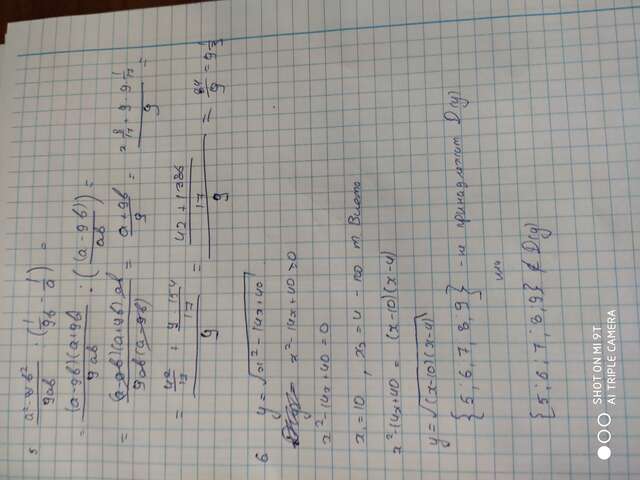 5 (a²-81b²)/(9ab) : (1/(9b) - 1/a) =
= (a-9b)(a+9b)/(9ab) : ((a-9b))/(ab) =
= (a-9b)(a+9b)ab/(9ab(a-9b)) = (a+9b)/9 =
6 y = √(x²-14x+40)
x²-14x+40≥0
x²-14x+40=0
x₁=10 , x₂=4 - по т. Виета
x²-14x+40 = (x-10)(x-4)
y=√((x-10)(x-4))
{5; 6; 7; 8; 9} - не принадлежит D(y)
или
{5; 6; 7; 8; 9} ∉ D(y)
SHOT ON MI 9T
AI TRIPLE CAMERA